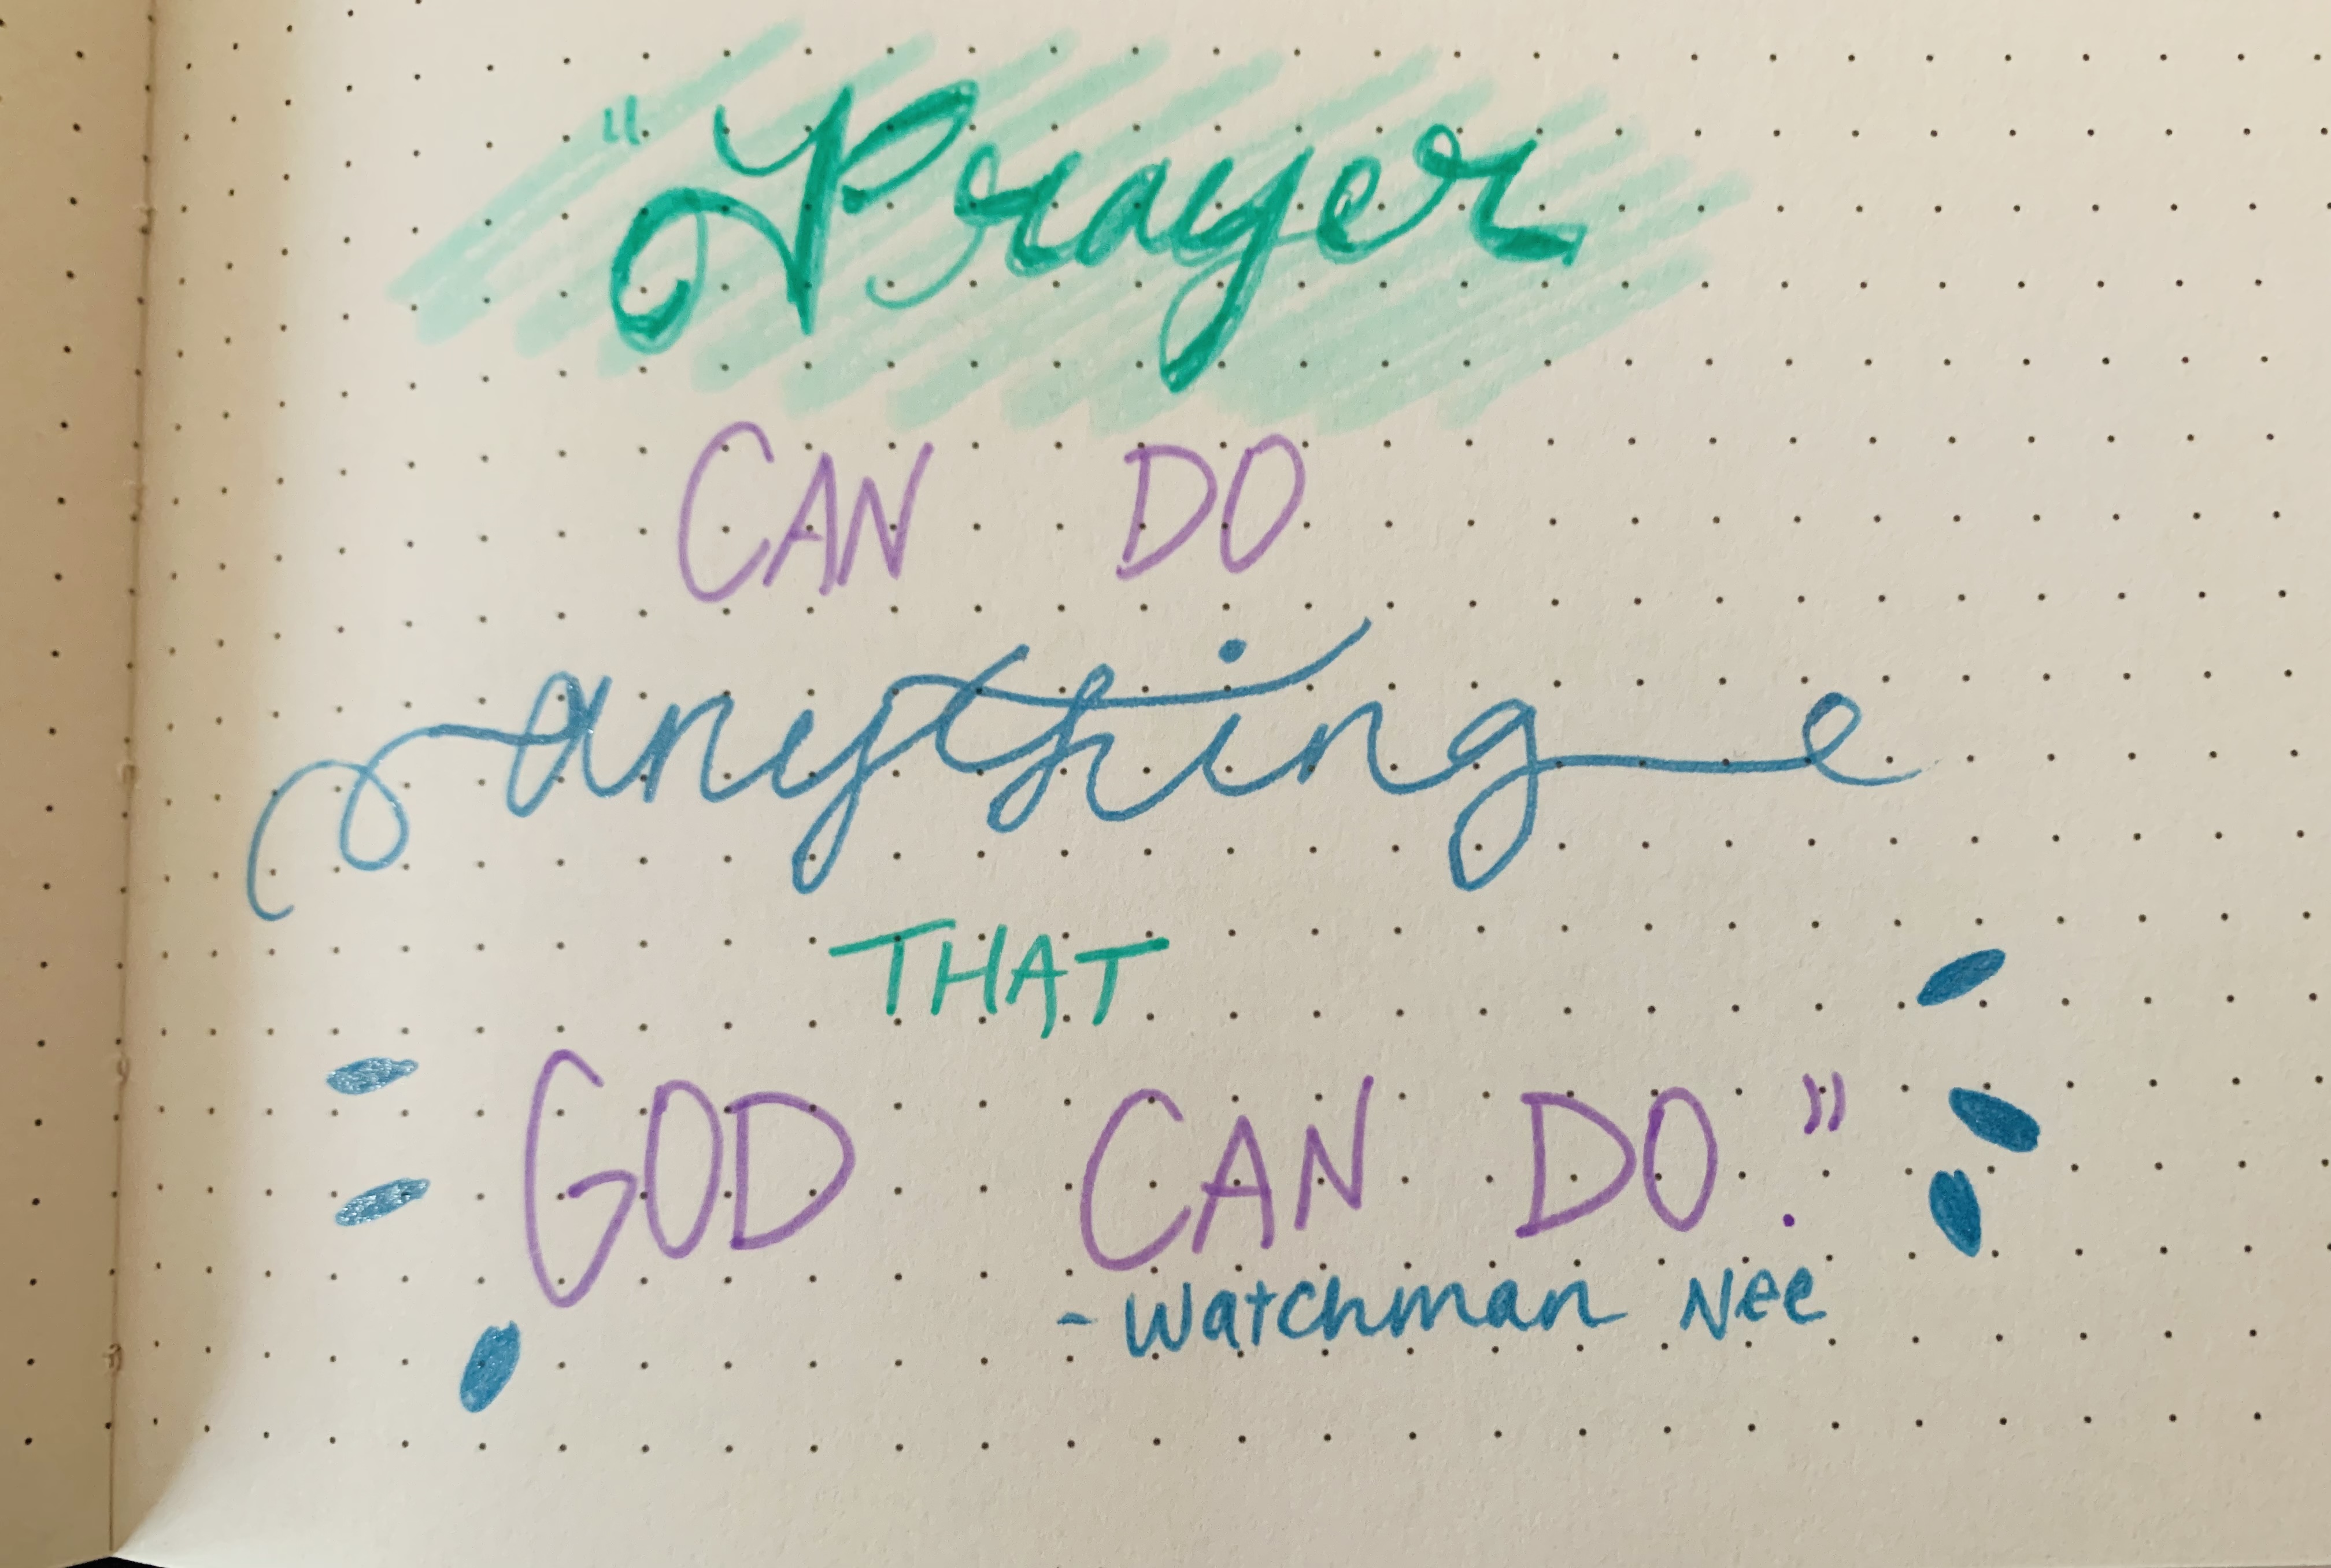 "Prayer
CAN DO
anything
THAT
GOD CAN DO."
- Watchman Nee